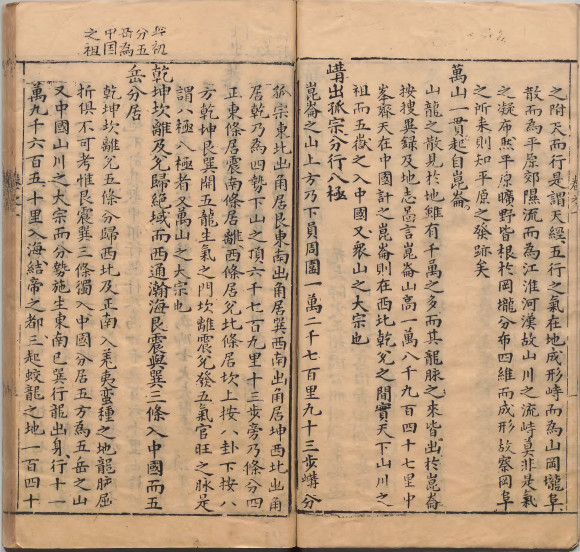 之附天而行是謂天經五行之氣在地成形峙而為山岡壠阜
散而為平原郊隰流而為江淮河漢故山川之流峙莫非是氣
之凝布然平原曠野皆根於岡壠分布四維而成形故察岡阜
之所来則知平原之發跡矣
萬山一貫起自崑崙
山龍之散見於地雖有千萬之多而其龍脉之來皆出於崑崙
按搜異録及地志啚言崑崙山高一萬八千九百四十七里中
峯齋天在中國計之崑崙則在西北乾兊之間實天下山川之
祖而五嶽之入中國又衆山之大宗也
嶹出孤宗分行八極
崑崙之山上方乃下員周圍一萬二千七百里九十三步嶹分
分五
岳為
中国
之祖
孤宗東北出角居艮東南出角居巽西南出角居坤西北出角
居乾乃為四勢下山之頂六千七百九里十三步旁乃條分四
正東條居震南條居離西條居兊北條居坎上按八卦下按八
方乾坤艮巽開五龍生氣之門坎離震兊發五氣官旺之脉是
謂八極八極者又萬山之大宗也
乾坤坎離及兊歸絕域而西通瀚海艮震與巽三條入中國而五
岳分居
乾坤坎離兊五條分歸西北及正南入羗夷蠻種之地龍脉屈
折俱不可考惟艮震巽三條獨入中國分居五方為五岳之山
又中國山川之大宗而分勢施生東南巳巽行龍出身行十一
萬九千六百五十里入海結帝之都三起蛟龍之地一百四十